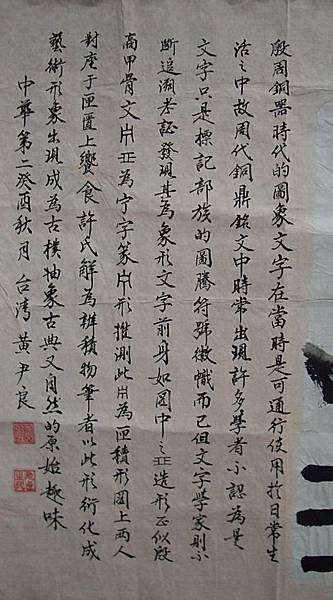 殷周銅器時代的圖象文字在當時是可通行使用於日常生
活之中故周代銅鼎銘文中時常出現許多學者亦認為是
文字只是標記部族的圖騰符號徽幟而已但文字學家則亦
斷追溯考証發現其為象形文字前身如図中之亞造形正似殷
商甲骨文為宁字篆形推測此為匣積形図上兩人
對座于匣置上饗食許氏解為辨積物筆者以此形衍化成
藝術形象出現成為古樸抽象古典又自然的原始趣味
中華第二癸酉秋月台湾黃尹良